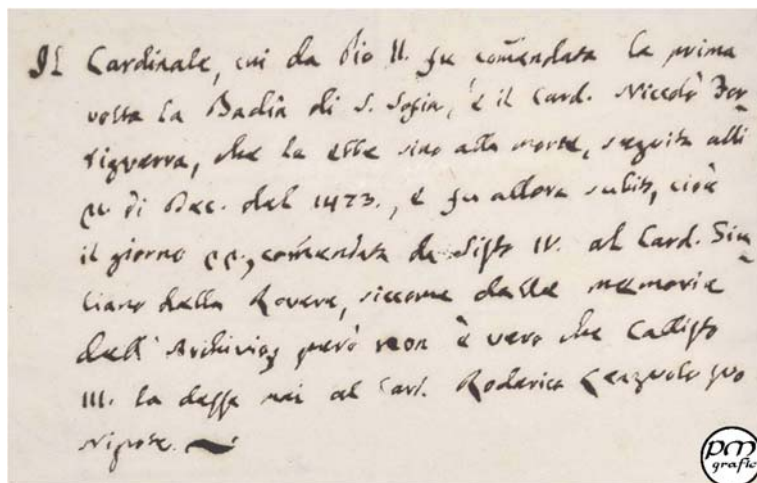 Il Cardinale, cui da Pio II. fu com̃endata la prima
volta la Badia di S. Sofia, è il Card. Niccolò For-
tiguerra, che la ebbe sino alla morte, seguita alli
di Dec. del 1473., e fu allora subito, cioè
il giorno com̃endata da Sisto IV. al Card. Giu-
liano della Rovere, siccome dalle memorie
dell' Archivio, però non è vero che Callisto
III. la desse mai al Card. Roderico Lenzuolo suo
Nipote.
pm
grafic